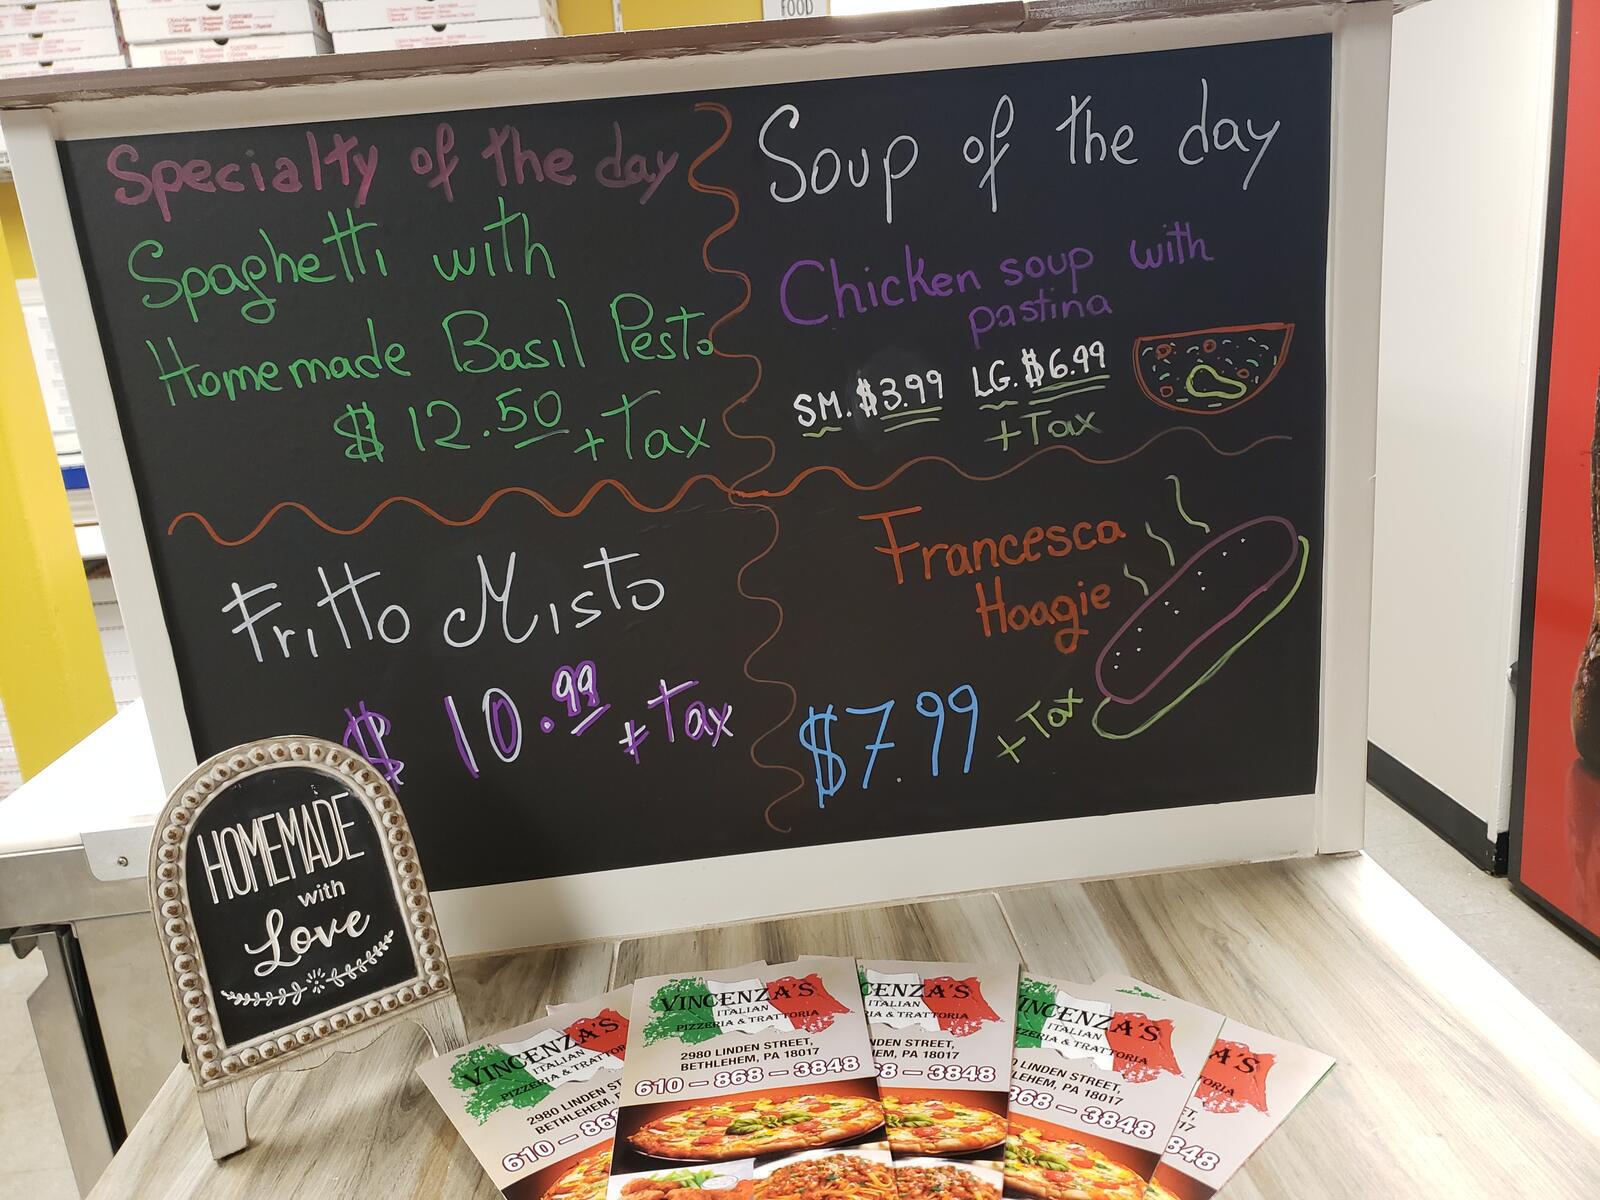 FOOD
Specialty of the day
Spaghetti with
Homemade Basil Pesto
$12.50 +Tax
Soup of the day
Chicken soup with
pastina
SM. $3.99 LG. $6.99
+Tax
Fritto Misto
$10.99 +Tax
Francesca
Hoagie
$7.99 +Tax
HOMEMADE
with
Love
VINCENZA'S
ITALIAN
PIZZERIA & TRATTOR
2980 LINDEN ST
BETHLEHEM, P
610 – 868
VINCENZA'S
ITALIAN
PIZZERIA & TRATTORIA
2980 LINDEN STREET,
BETHLEHEM, PA 18017
610 – 868 – 3848
CENZA'S
ITALIAN
A & TRATTORIA
NDEN STREET,
EM, PA 18017
68 – 3848
INCENZA'S
ITALIAN
ZZERIA & TRATTORIA
LINDEN STREET,
LEHEM, PA 18017
868 – 3848
A'S
TORIA
ET,
17
848